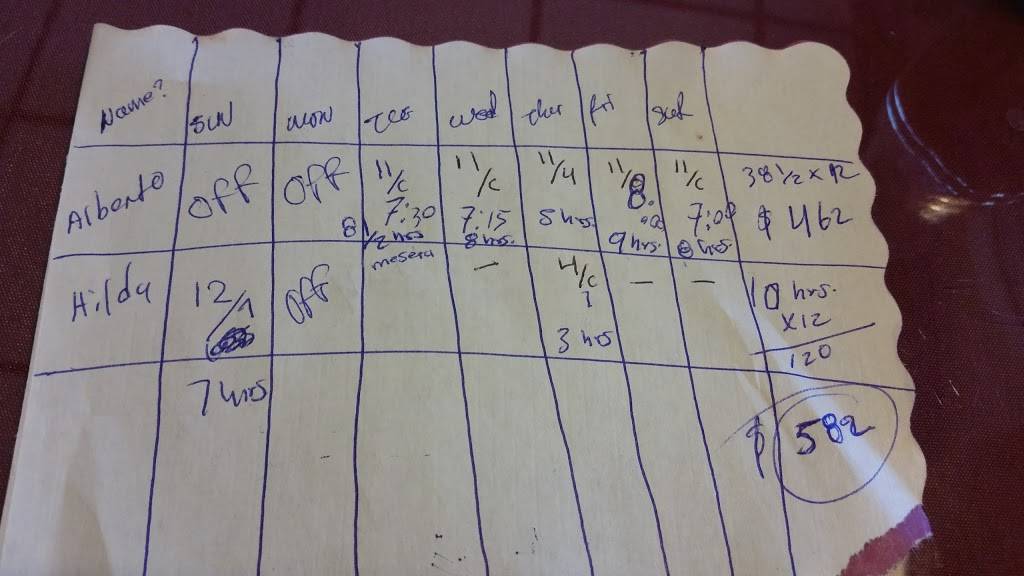 Name? SUN MON Tue wed thur fri sat
Alberto OFF OFF 11/c 11/c 11/4 11/8. 11/c 38 1/2 x 12
7:30 7:15 5 hrs. :00 7:00 $ 462
8 1/2 hrs 8 hrs. 9 hrs. 8 hrs.
Hilda 12/ OFF mesera — 4/c — — 10 hrs.
x12
3 hrs 120
7 hrs
$ 582